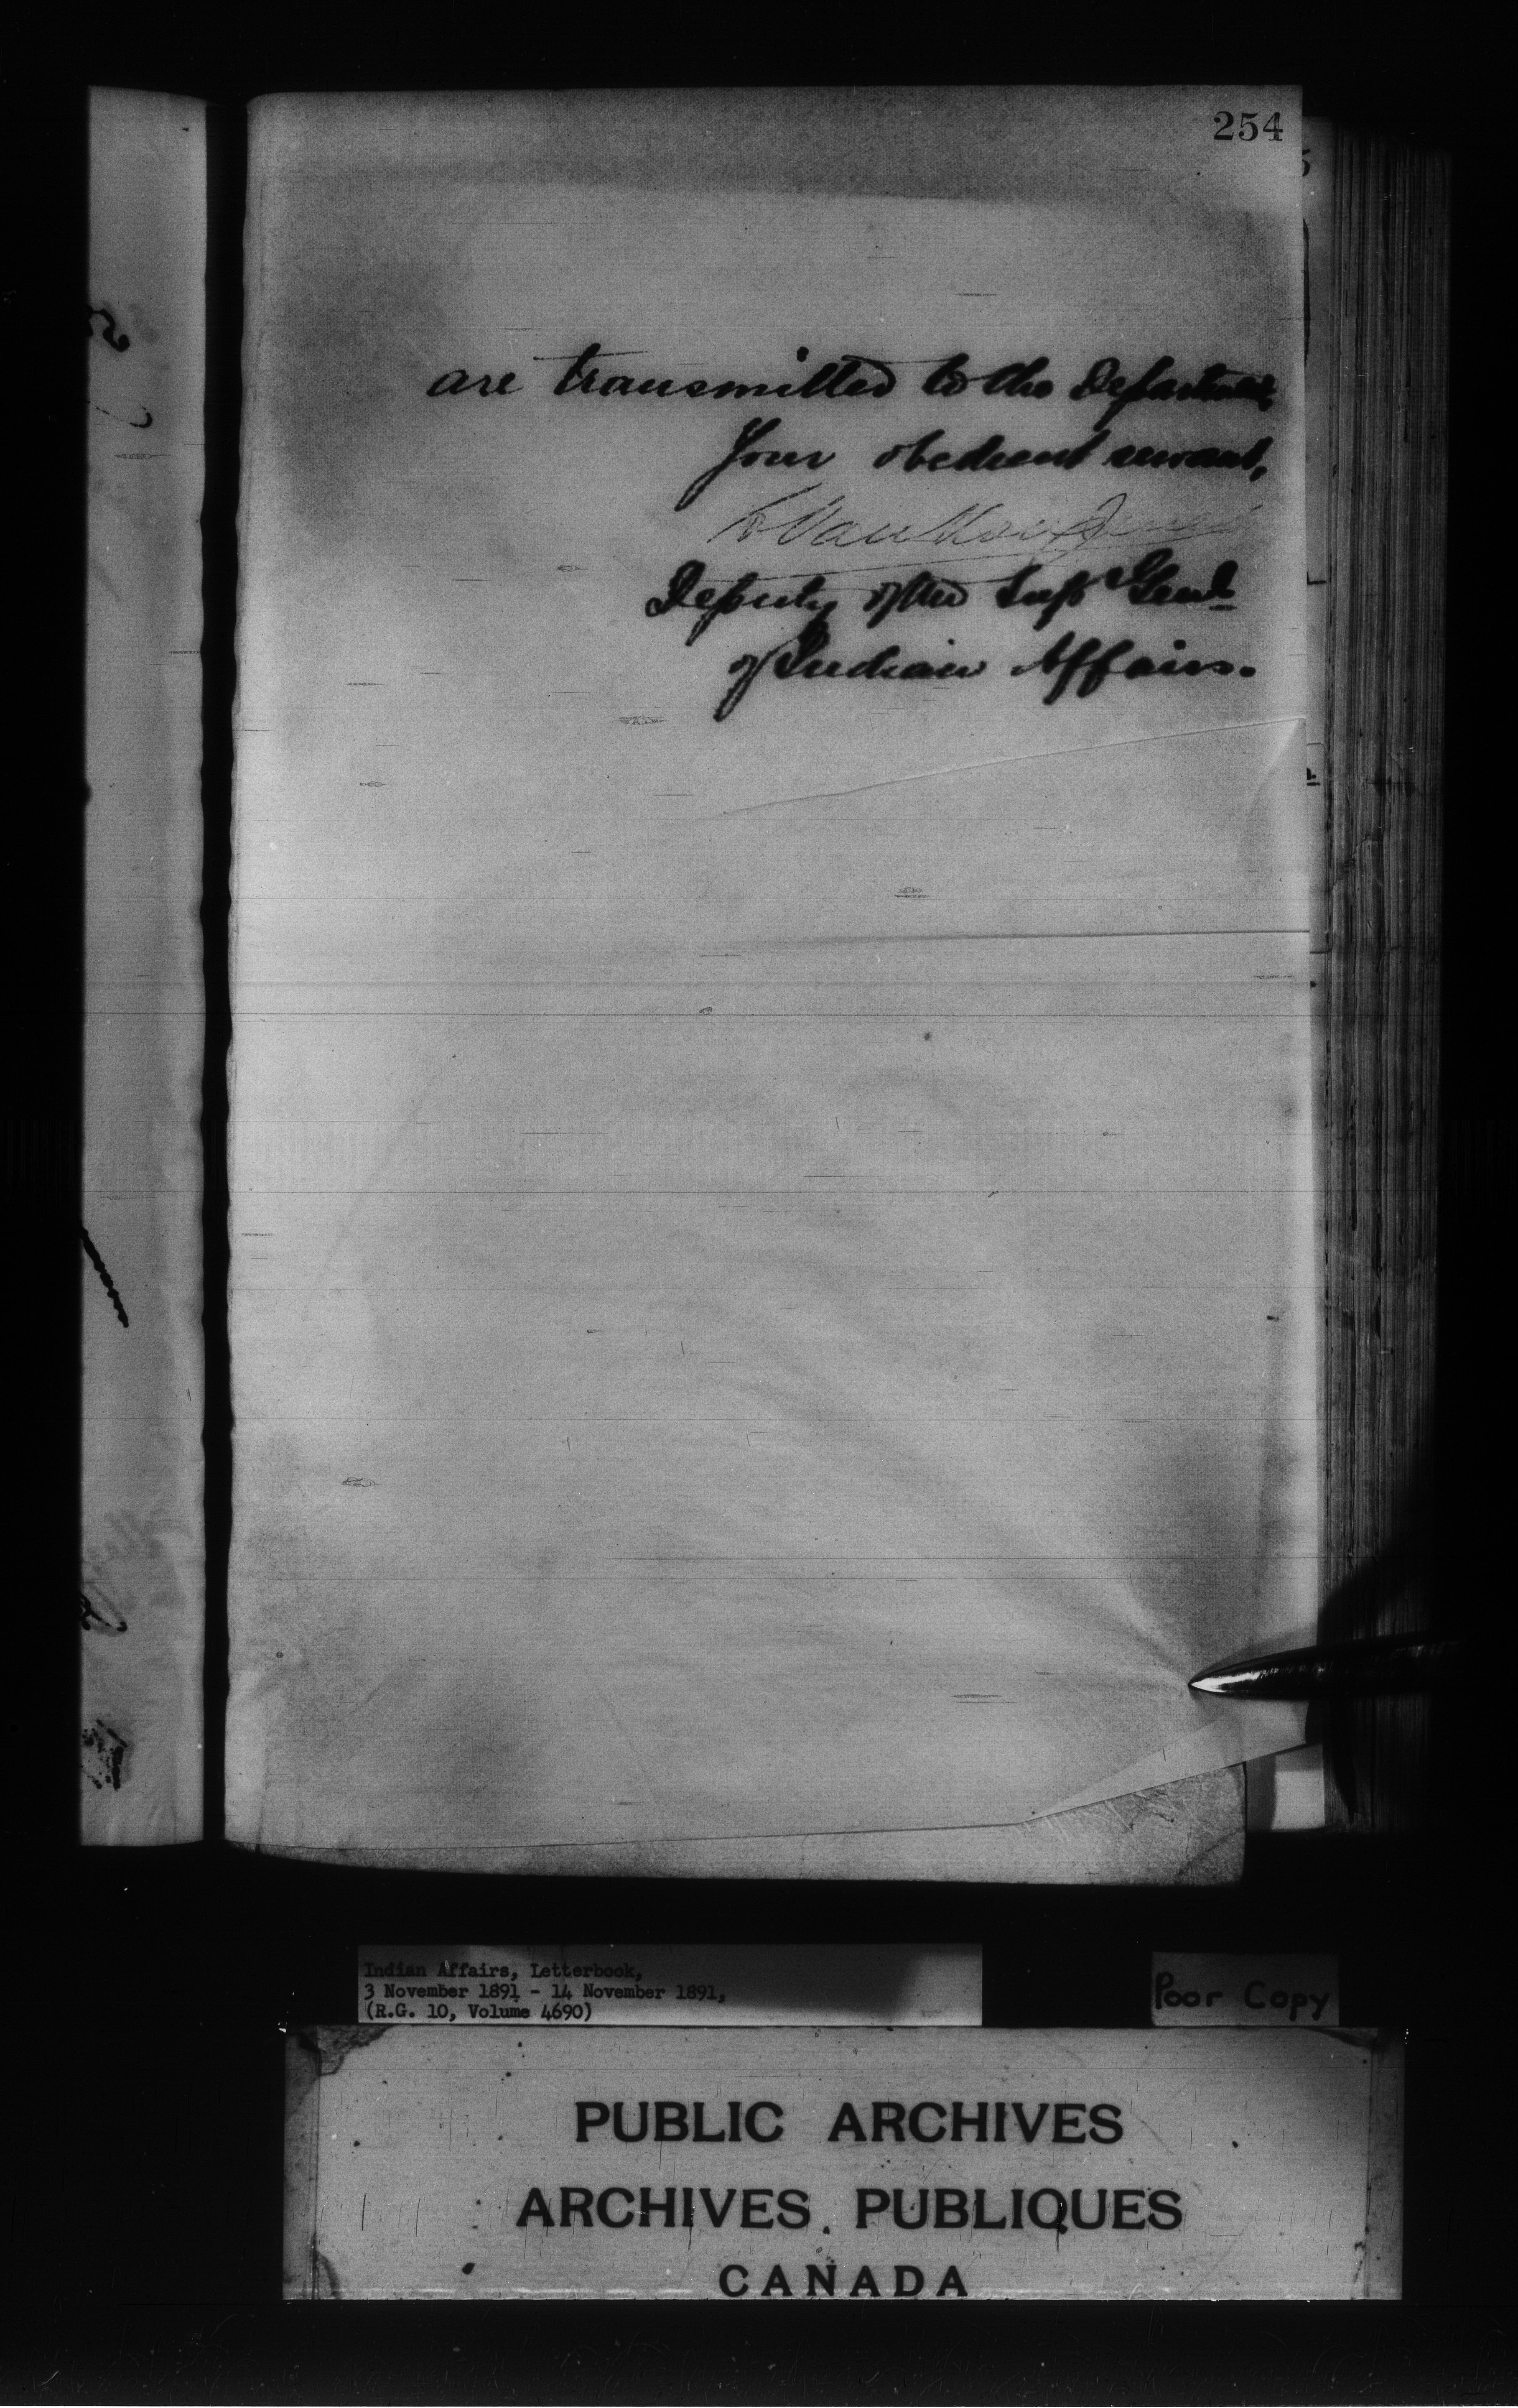 254
are transmitted to the Department,
Your obedient servant,
L Vankoughnet
Deputy of the Supt Genl
of Indian Affairs.
Indian Affairs, Letterbook,
3 November 1891 - 14 November 1891,
(R.G. 10, Volume 4690)
Poor Copy
PUBLIC ARCHIVES
ARCHIVES PUBLIQUES
CANADA